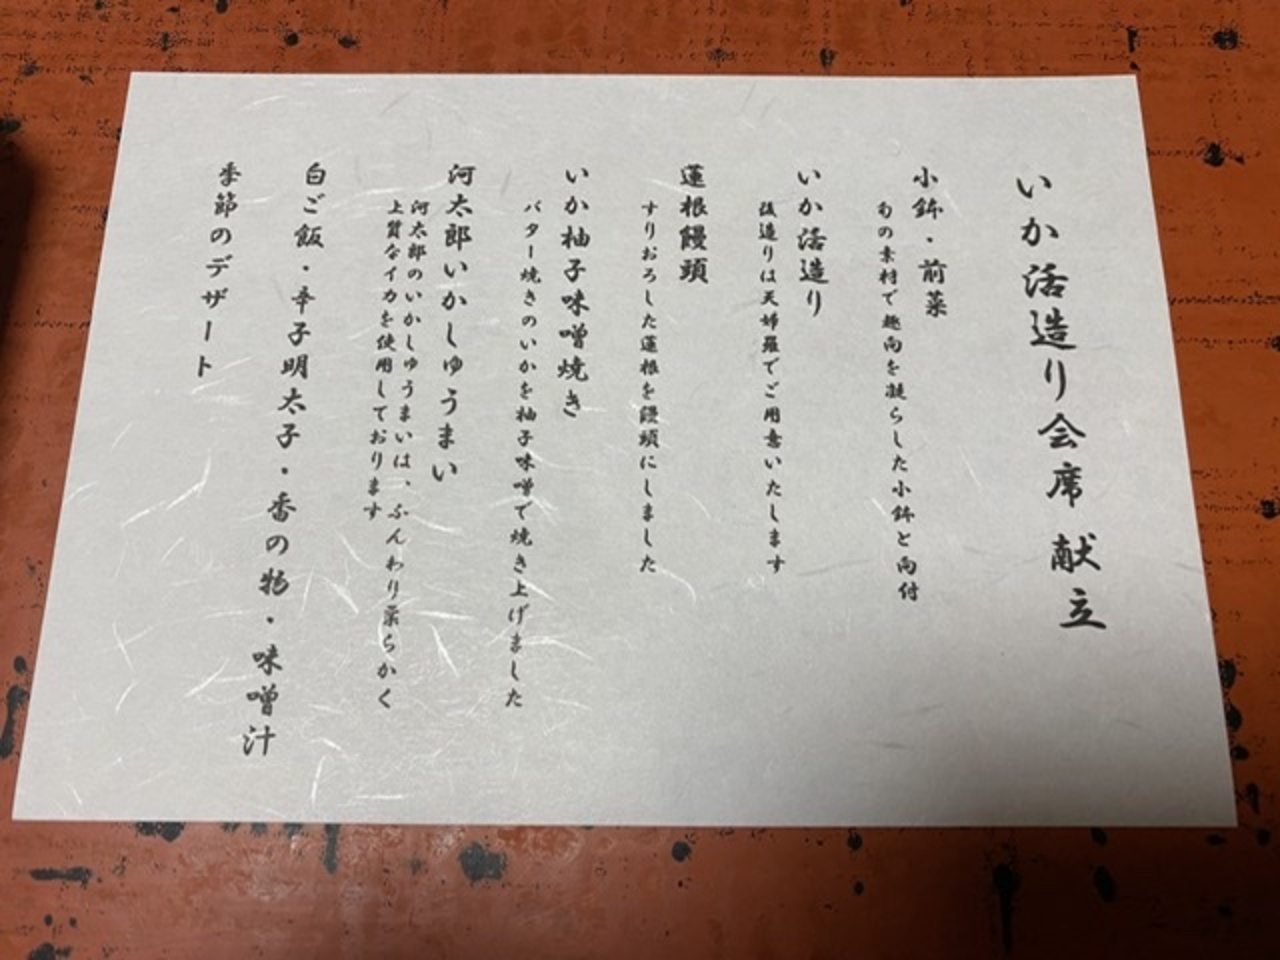 いか活造り会席 献立
小鉢・前菜
旬の素材で趣向を凝らした小鉢と向付
いか活造り
後造りは天婦羅でご用意いたします
蓮根饅頭
すりおろした蓮根を饅頭にしました
いか柚子味噌焼き
バター焼きのいかを柚子味噌で焼き上げました
河太郎いかしゅうまい
河太郎のいかしゅうまいは、ふんわり柔らかく
上質なイカを使用しております
白ご飯・辛子明太子・香の物・味噌汁
季節のデザート